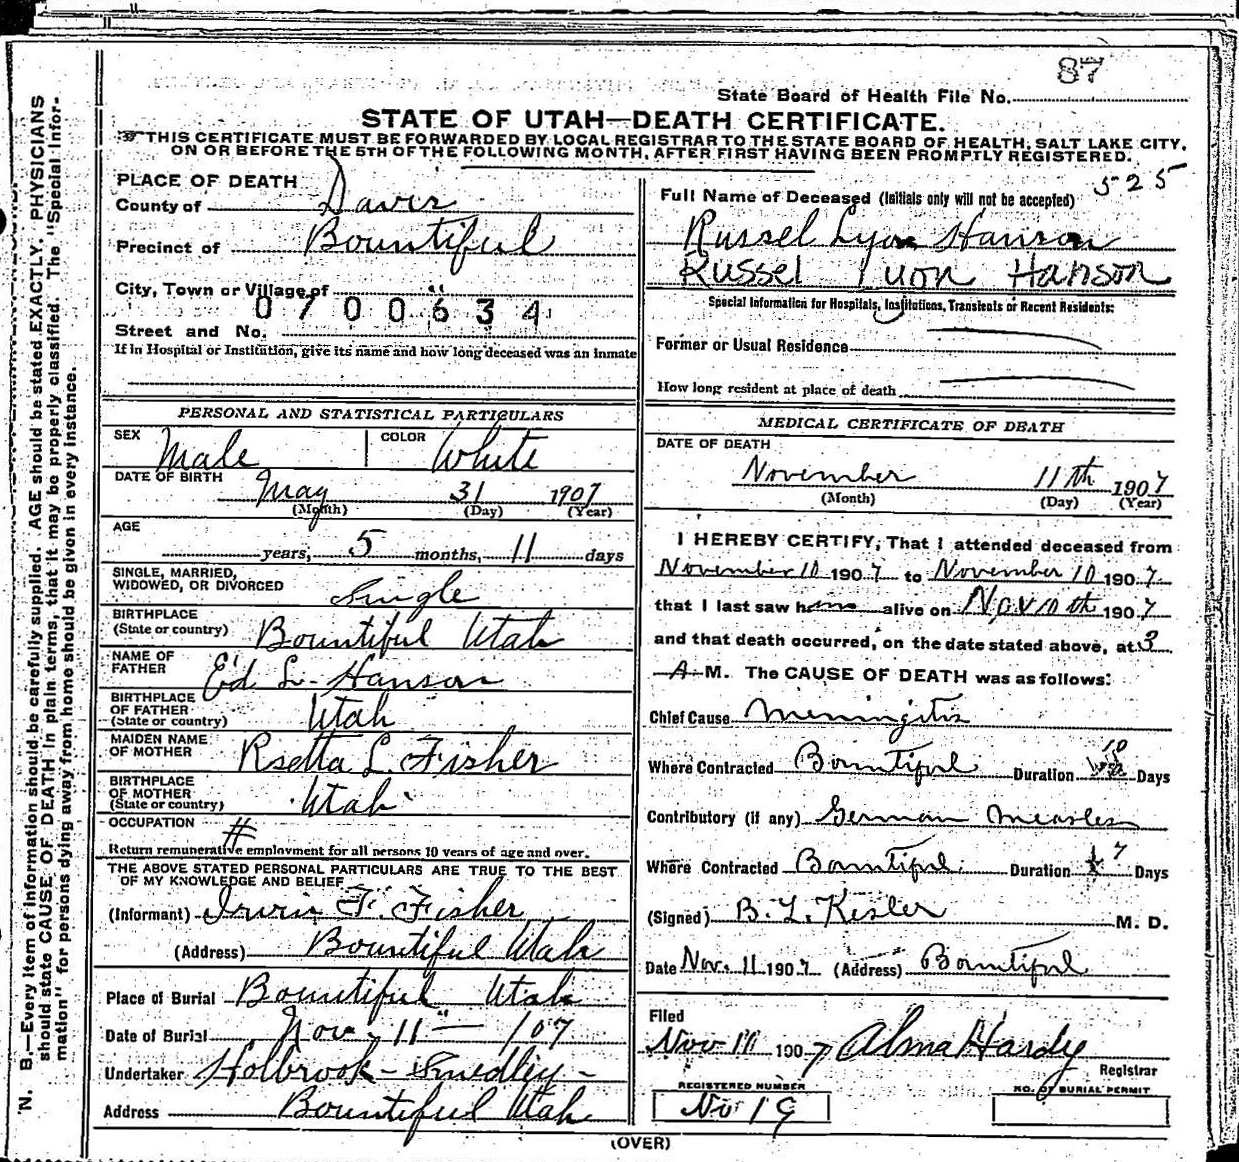 87
State Board of Health File No.
STATE OF UTAH—DEATH CERTIFICATE.
THIS CERTIFICATE MUST BE FORWARDED BY LOCAL REGISTRAR TO THE STATE BOARD OF HEALTH, SALT LAKE CITY,
ON OR BEFORE THE 5TH OF THE FOLLOWING MONTH, AFTER FIRST HAVING BEEN PROMPTLY REGISTERED.
N. B.—Every item of information should be carefully supplied. AGE should be stated EXACTLY. PHYSICIANS
should state CAUSE OF DEATH in plain terms, that it may be properly classified. The "Special Infor-
mation" for persons dying away from home should be given in every instance.
PLACE OF DEATH
County of Davis
Precinct of Bountiful
City, Town or Village of "
0700634
Street and No.
If in Hospital or Institution, give its name and how long deceased was an inmate
525
Full Name of Deceased (Initials only will not be accepted)
Russel Lyon Hanson
Russel Lyon Hanson
Special Information for Hospitals, Institutions, Transients or Recent Residents:
Former or Usual Residence
How long resident at place of death
PERSONAL AND STATISTICAL PARTICULARS
SEX Male COLOR White
DATE OF BIRTH
May 31 1907
(Month) (Day) (Year)
AGE
years, 5 months, 11 days
SINGLE, MARRIED,
WIDOWED, OR DIVORCED Single
BIRTHPLACE
(State or country) Bountiful Utah
NAME OF
FATHER Ed L. Hanson
BIRTHPLACE
OF FATHER
(State or country) Utah
MAIDEN NAME
OF MOTHER Rsetta L. Fisher
BIRTHPLACE
OF MOTHER
(State or country) Utah
OCCUPATION #
Return remunerative employment for all persons 10 years of age and over.
THE ABOVE STATED PERSONAL PARTICULARS ARE TRUE TO THE BEST
OF MY KNOWLEDGE AND BELIEF
(Informant) Irwin F. Fisher
(Address) Bountiful Utah
Place of Burial Bountiful Utah
Date of Burial Nov. 11" — 107
Undertaker Holbrook - Smedley -
Address Bountiful Utah
MEDICAL CERTIFICATE OF DEATH
DATE OF DEATH
November 11th 1907
(Month) (Day) (Year)
I HEREBY CERTIFY, That I attended deceased from
November 10 1907 to November 10 1907
that I last saw him alive on Nov 10th 1907
and that death occurred, on the date stated above, at 3
A M. The CAUSE OF DEATH was as follows:
Chief Cause Meningitis
Where Contracted Bountiful Duration 10 Days
Contributory (if any) German Measles
Where Contracted Bountiful. Duration 7 Days
(Signed) B. L. Kesler M. D.
Date Nov. 11 1907 (Address) Bountiful
Filed
Nov 11 1907 Alma Hardy
Registrar
REGISTERED NUMBER
No 19
NO. OF BURIAL PERMIT
(OVER)